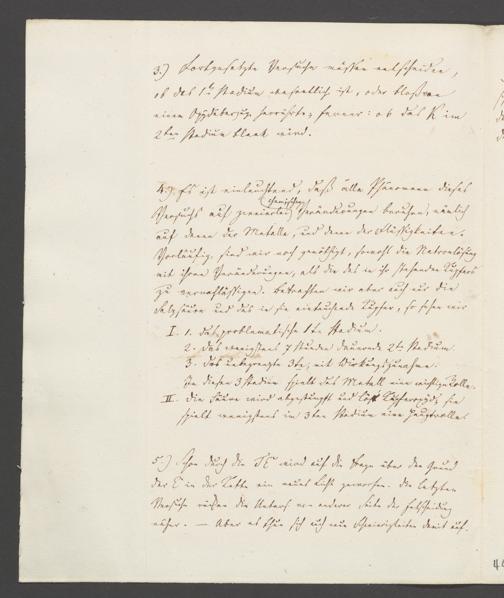 3.) Fortgesetzte Versuche müssen entscheiden,
ob das 1te Stadium wesentlich ist, oder bloß von
einem Oxydüberzug herrührte, ferner: ob das K im
2ten Stadium blank wird.
4.) Es ist einleuchtend, daß alle Phänomene dieses
Versuchs auf zweierlei chemischen Veränderungen beruhen, nämlich
auf denen der Metalle, und denen der Flüssigkeiten.
Vorläufig sind wir noch genöthigt, sowohl die Natronlösung
mit ihren Veränderungen, als die des in ihr stehenden Kupfers
zu vernachlässigen. Betrachten wir aber auch nur die
Salzsäure und das in sie eintauchende Kupfer, so sehen wir
I. 1. das problematische 1te Stadium.
2. das wenigstens 7 Stunden dauernde 2te Stadium.
3. das unbegrenzte 3te, mit Wirkungszunahme.
In diesen 3 Stadien spielt das Metall eine wichtige Rolle.
II. Die Säure wird abgestumpft und löst Kupferoxyd; sie
spielt wenigstens im 3ten Stadium eine Hauptrolle.
5.) Schon durch die wird auf die Frage über den Grund
der in der Kette ein neues Licht geworfen. Die letzten
Versuche rücken die von anderer Seite der Entscheidung
näher. — Aber es thun sich auch neue Schwierigkeiten damit auf.